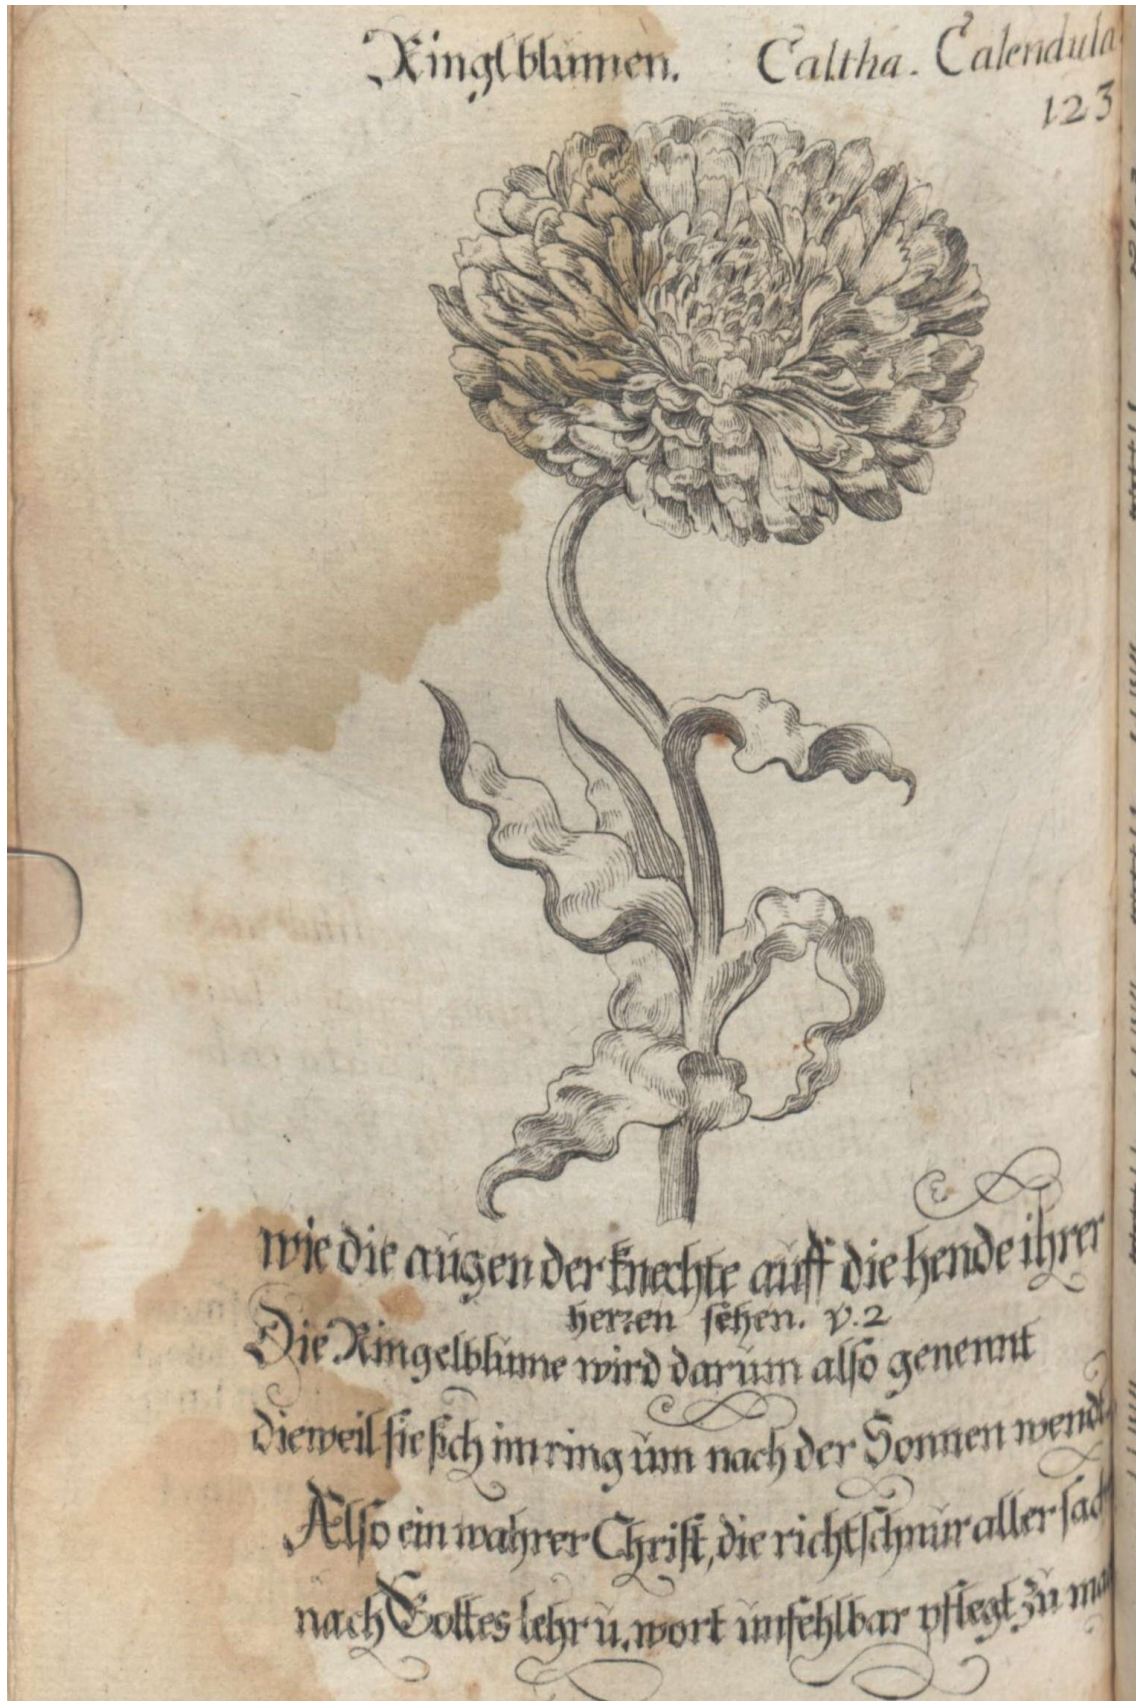 Ringlblumen. Caltha. Calendula
123
wie die augen der knechte auff die hende ihrer
herren sehen. v. 2
Die Ringelblume wird darum also genennt
dieweil sie sich im ring um nach der Sonnen wendt.
Also ein wahrer Christ, die richtschnur aller sach
nach Gottes lehr u. wort unfehlbar pflegt zu